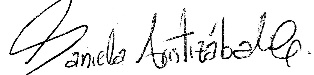 Daniela Aristizábal G.